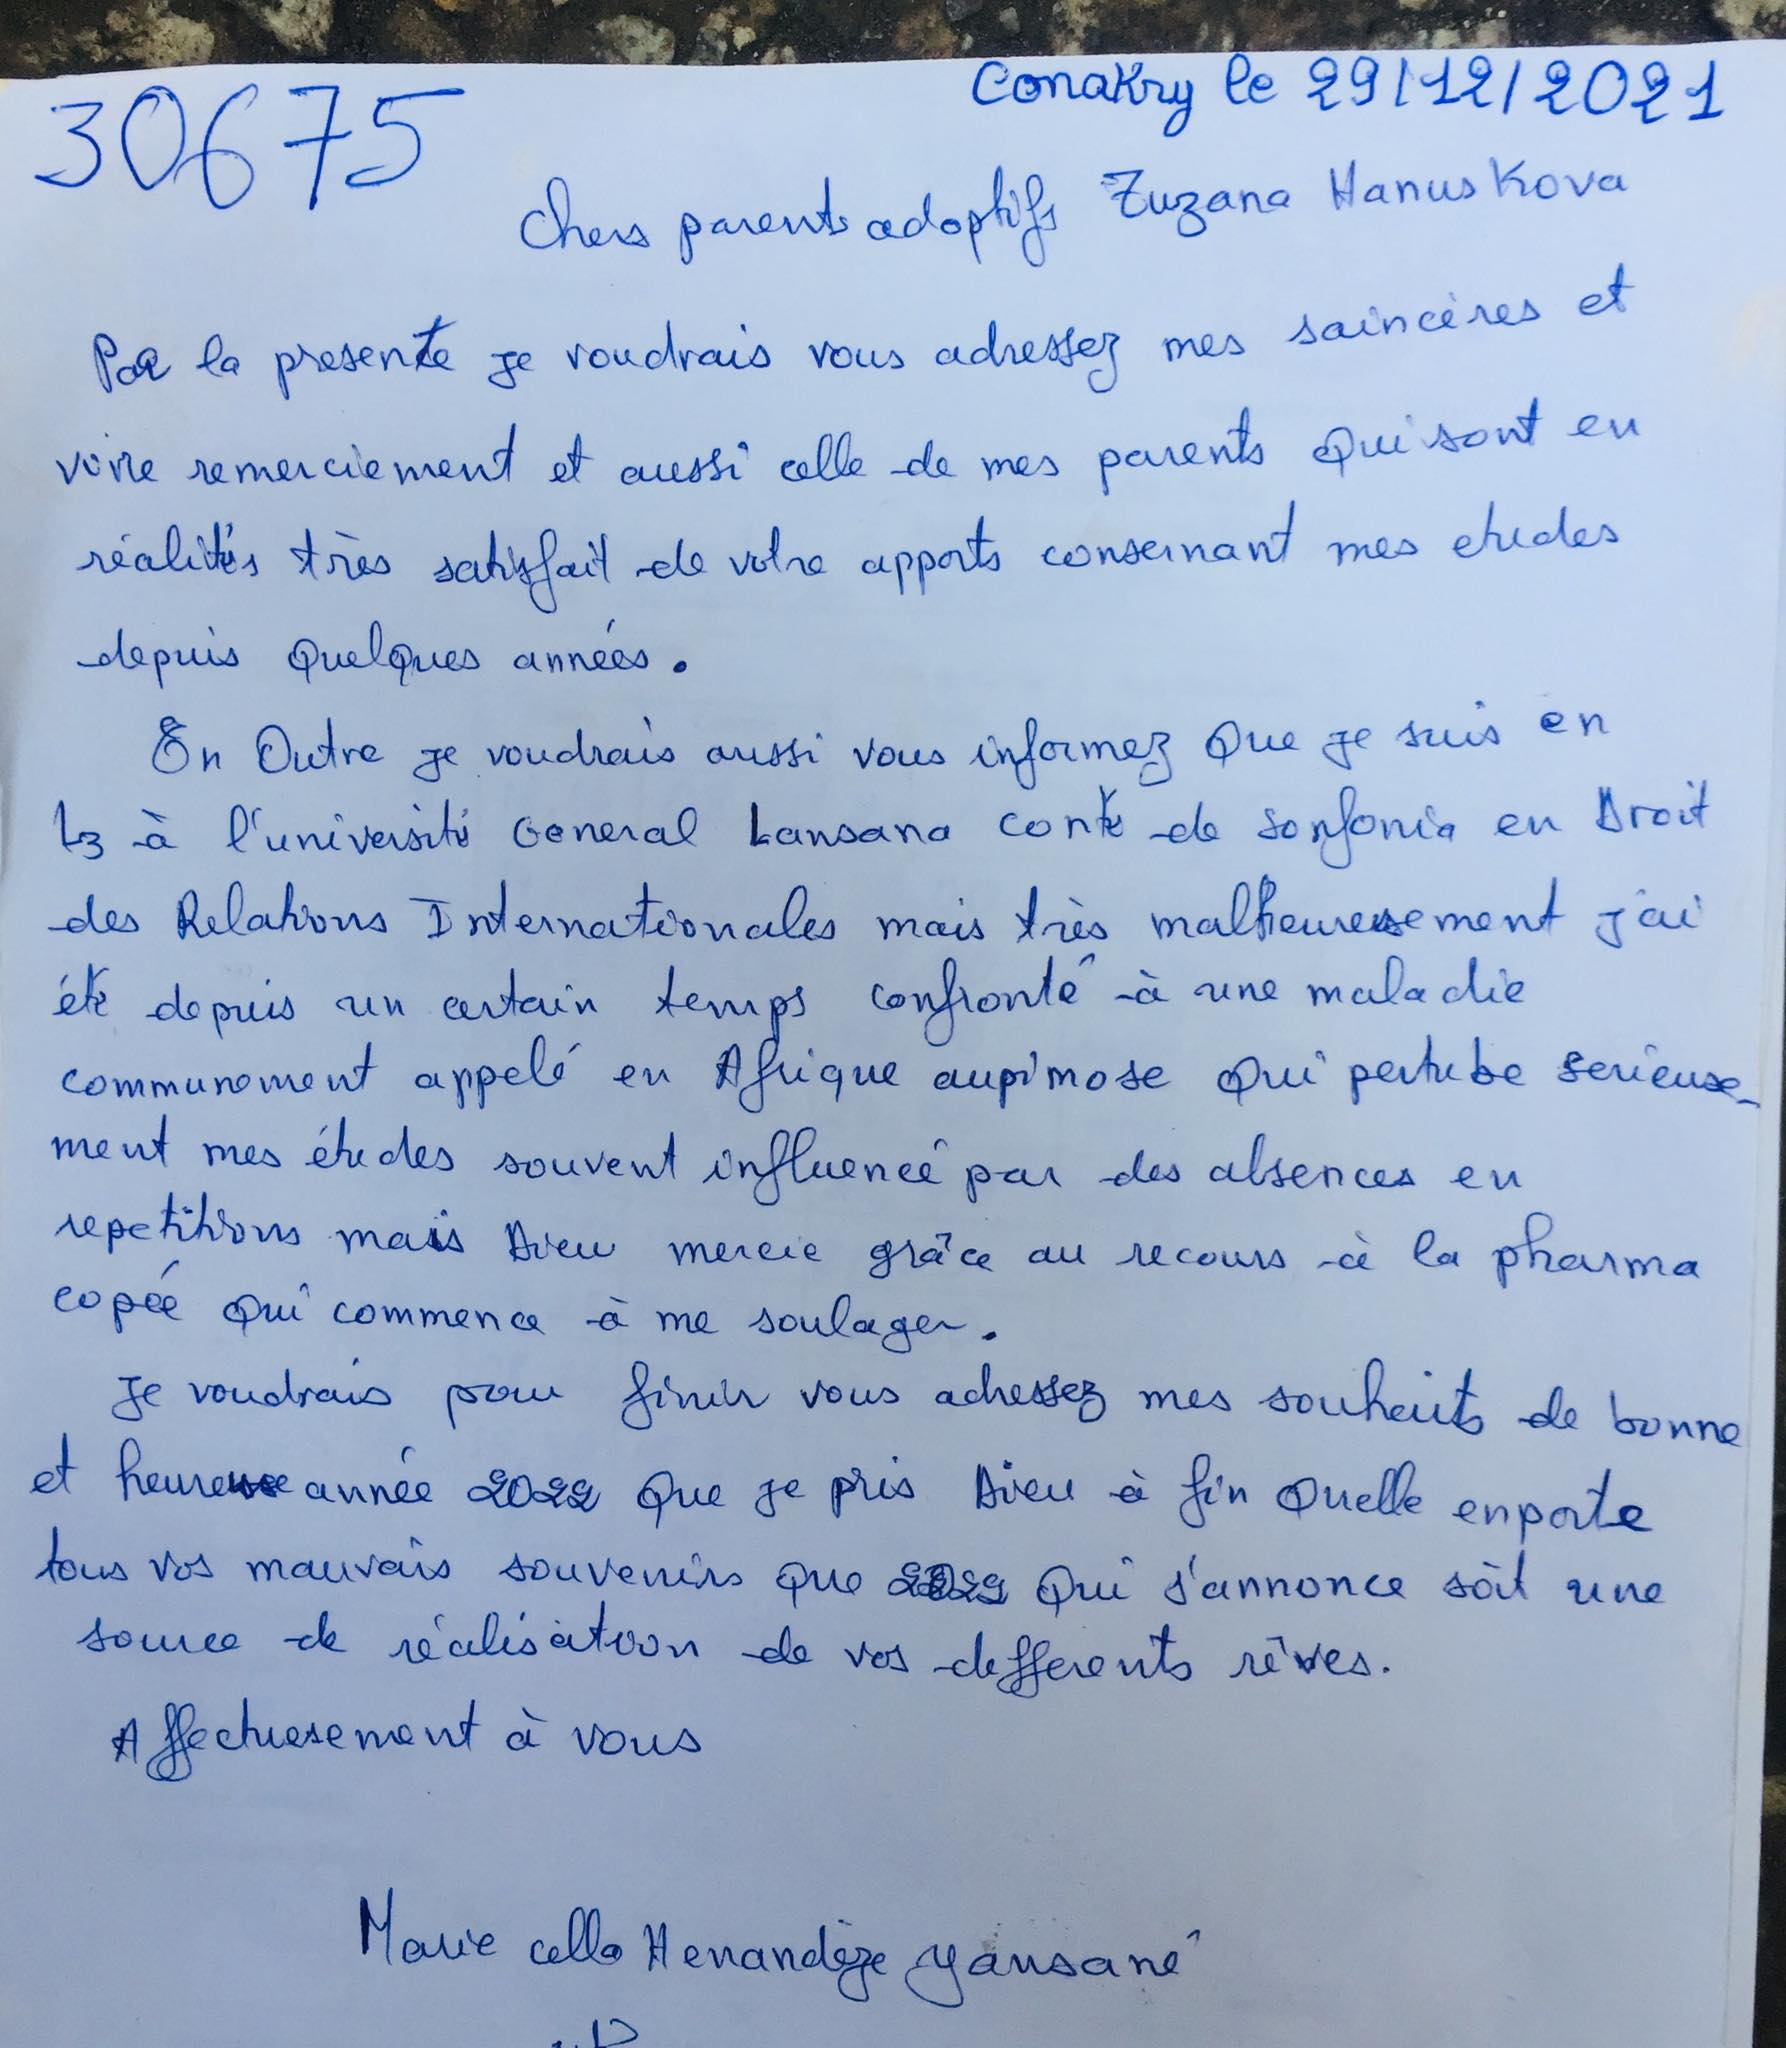 30675
Conakry le 29/12/2021
Chers parents adoptifs Zuzana Hanuskova
Par la presente je voudrais vous adressez mes saincères et
vivre remerciement et aussi celle de mes parents qui sont en
réalités très satisfait de votre apports consernant mes etudes
depuis quelques années.
En Outre je voudrais aussi vous informez que je suis en
L3 à l'université General Lansana conté de sonfonia en Droit
des Relations Internationales mais très malheureusement j'ai
été depuis un certain temps confronté à une maladie
communement appelé en Afrique aupimose qui pertube serieuse-
ment mes études souvent influencé par des absences en
repetitions mais Dieu mercie grâce au recours à la pharma
copée qui commence à me soulager.
Je voudrais pour finir vous adressez mes souhaits de bonne
et heureuse année 2022 que je pris Dieu à fin quelle enporte
tous vos mauvais souvenirs que 2022 qui s'annonce soit une
source de réalisation de vos defferents rêves.
Affectuesement à vous
Marie cello Henandèze Yansané